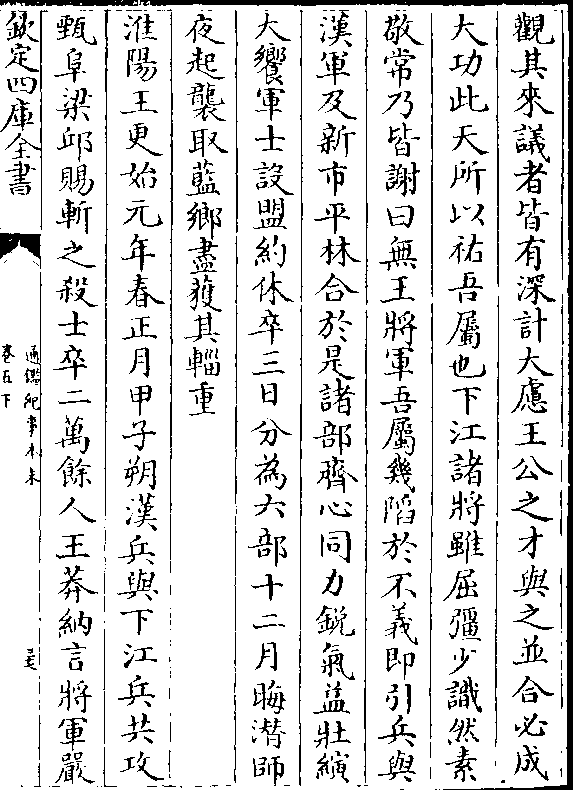 觀其來議者皆有深計大慮王公之才與之並合必成
大功此天所以祐吾屬也下江諸將雖屈彊少識然素
敬常乃皆謝曰無王將軍吾屬幾陷於不義即引兵與
漢軍及新市平林合於是諸部齊心同力銳氣益壯縯
大饗軍士設盟約休卒三日分為六部十二月晦潛師
夜起襲取藍鄉盡獲其輜重
淮陽王更始元年春正月甲子朔漢兵與下江兵共攻
甄阜梁邱賜斬之殺士卒二萬餘人王莽納言將軍嚴
欽定四庫全書
通鑑紀事本末
卷五下